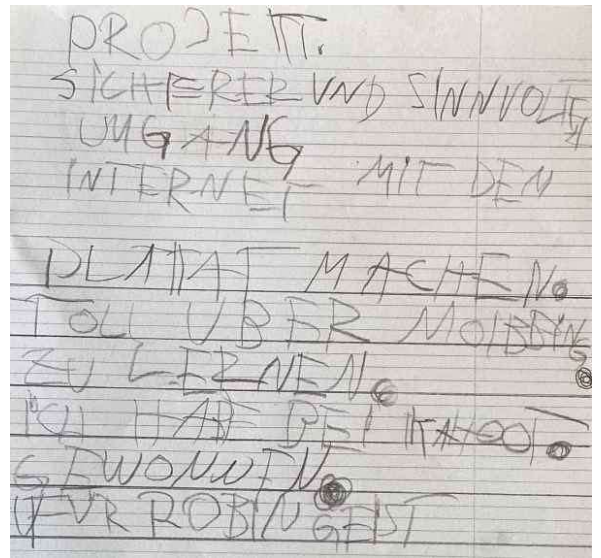 PROJEKT.
SICHERER UND SINNVOLLER
UMGANG
INTERNET MIT DEN
PLATTAT MACHEN.
TOLL UBER MOIBBING
ZU LERNEN.
ICH HABE BEI KAHOOT.
GEWONNEN.
V-VR ROBIN GEIST